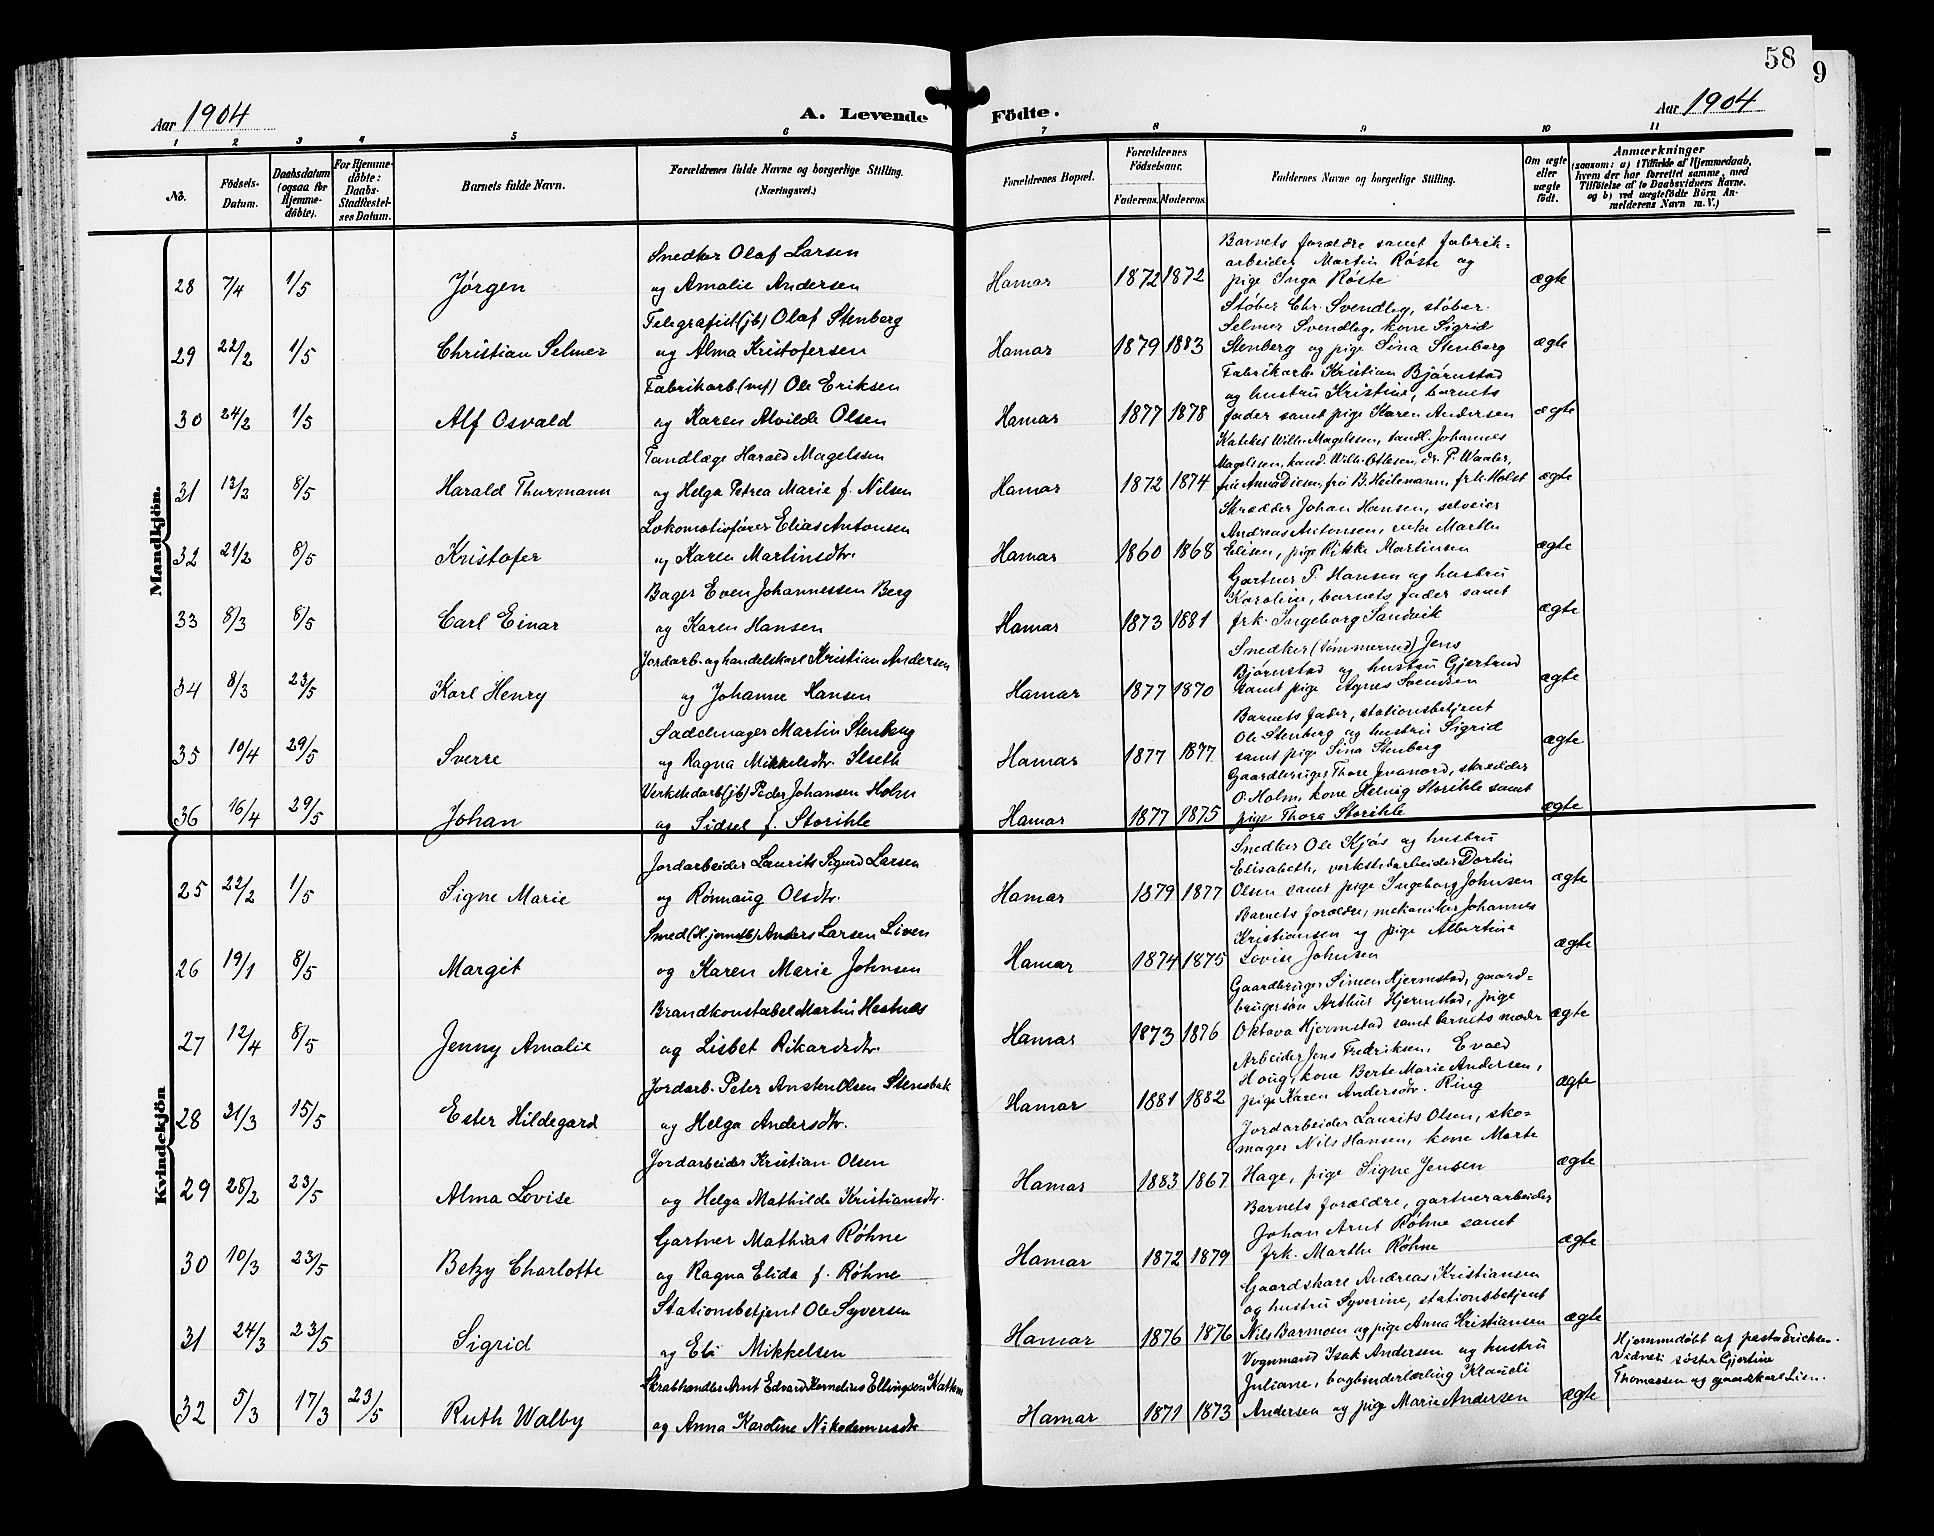 58
9
Aar 1904
A. Levende Födte.
Aar 1904
1 2 3 4 5 6 7 8 9 10 11
No.
Födsels-Datum.
Daabsdatum (ogsaa for Hjemmedöbte).
For Hjemmedöbte: Daabs-Stadfæstelses Datum.
Barnets fulde Navn.
Forældrenes fulde Navne og borgerlige Stilling. (Næringsvei.)
Forældrenes Bopæl.
Forældrenes Födselsaar.
Faderens. Moderens.
Faddernes Navne og borgerlige Stilling.
Om ægte eller uægte født.
Anmærkninger
(saasom: a) i Tilfælde af Hjemmedaab, hvem der har forrettet samme, med Tilföielse af to Daabsvidners Navne, og b) ved uægtefödte Börn Anmelderens Navn m. V.)
Mandkjön.
28 7/4 1/5 Jørgen
Snedker Olaf Larsen
og Amalie Andersen
Hamar 1872 1872
Barnets forældre samt fabrik-
arbeider Martin Røste og
pige Inga Røste
ægte
29 22/2 1/5 Christian Selmer
Telegrafist (jb) Olaf Stenberg
og Alma Kristofersen
Hamar 1879 1883
Støber Chr. Svendleg, støber
Selmer Svendleg, kone Sigrid
Stenberg og pige Sina Stenberg
ægte
30 24/2 1/5 Alf Osvald
Fabrikarb (mf) Ole Eriksen
og Karen Alvilde Olsen
Hamar 1877 1878
Fabrikarb. Kristian Bjørnstad
og hustru Kristine, barnets
fader samt pige Karen Andersen
ægte
31 12/2 8/5 Harald Thurmann
Tandlæge Harald Magelssen
og Helga Petrea Marie f. Nilsen
Hamar 1872 1874
Kateket Wilh. Magelssen, tandl. Johannes
Magelssen, kand. Wilh. Ottesen, dr. P. Waaler,
fru Anna Diesen, fru B. Heilemann, frk. Holst
ægte
32 21/2 8/5 Kristofer
Lokomotivfører Elias Antonsen
og Karen Martinsdtr.
Hamar 1860 1868
Skrædder Johan Hansen, selveier
Andreas Antonsen, enke Marthe
Elisen, pige Rikke Martinsen
ægte
33 8/3 8/5 Carl Einar
Bager Even Johannessen Berg
og Karen Hansen
Hamar 1873 1881
Gartner P. Hansen og hustru
Karoline, barnets fader samt
frk. Ingeborg Sandvik
ægte
34 8/3 23/5 Karl Henry
Jordarb. og handelskarl Kristian Andersen
og Johanne Hansen
Hamar 1877 1870
Snedker (tømmermd) Jens
Bjørnstad og hustru Gjertrud
samt pige Agnes Svendsen
ægte
35 10/4 29/5 Sverre
Sadelmager Martin Stenberg
og Ragna Mikkelsdtr. Ilseth
Hamar 1877 1877
Barnets fader, stationsbetjent
Ole Stenberg og hustru Sigrid
samt pige Sina Stenberg
ægte
36 16/4 29/5 Johan
Verkstedarb (jb) Peder Johansen Holm
og Sidsel f. Storihle
Hamar 1877 1875
Gaardbruger Thore Jevanord, skrædder
O. Holm, kone Helvig Storihle samt
pige Thora Storihle
ægte
Kvindekjön
25 22/2 1/5 Signe Marie
Jordarbeider Laurits Sigurd Larsen
og Rønnaug Olsdtr.
Hamar 1879 1877
Snedker Ole Kjøs og hustru
Elisabeth, verkstedarbeider Dortin
Olsen samt pige Ingeborg Johnsen
ægte
26 19/1 8/5 Margit
Smed (H. jernstb) Anders Larsen Liven
og Karen Marie Johnsen
Hamar 1874 1875
Barnets forældre, mekaniker Johannes
Kristiansen og pige Albertine
Lovise Johnsen
ægte
27 12/4 8/5 Jenny Amalie
Brandkonstabel Martin Hestnes
og Lisbet Rikardsdtr.
Hamar 1873 1876
Gaardbruger Simen Hjermstad, gaard-
brugersøn Arthur Hjermstad, pige
Oktava Hjermstad samt barnets moder
ægte
28 31/3 15/5 Ester Hildegard
Jordarb. Peter Ansten Olsen Stensbak
og Helga Andersdtr.
Hamar 1881 1882
Arbeider Jens Fredriksen, Evald
Houg, kone Berte Marie Andersen,
pige Karen Andersdtr. Ring
ægte
29 28/2 23/5 Alma Lovise
Jordarbeider Kristian Olsen
og Helga Mathilde Kristiansdtr.
Hamar 1883 1867
Jordarbeider Laurits Olsen, sko-
mager Nils Hansen, kone Marte
Hage, pige Signe Jensen
ægte
30 10/3 23/5 Betzy Charlotte
Gartner Mathias Røhne
og Ragna Elida f. Røhne
Hamar 1872 1879
Barnets forældre, gartnerarbeider
Johan Arnt Røhne samt
frk. Marthe Røhne
ægte
31 24/3 23/5 Sigrid
Stationsbetjent Ole Syversen
og Eli Mikkelsen
Hamar 1876 1876
Gaardskare Andreas Kristiansen
og hustru Syverine, stationsbetjent
Nils Barmoen og pige Anna Kristiansen
ægte
32 5/3 17/3 23/5 Ruth Walby
Skrabhandler Arnt Edvard Kornelius Ellingsen
og Anna Karoline Nikodemusdtr
Hamar 1871 1873
Vognmand Isak Andersen og hustru
Juliane, bogbinderlærling Klaudi
Andersen og pige Marie Andersen
ægte
Hjemmedøbt af pastor Erichsen.
Vidner: søster Gjertine
Thomassen og gaardskarl Lien.